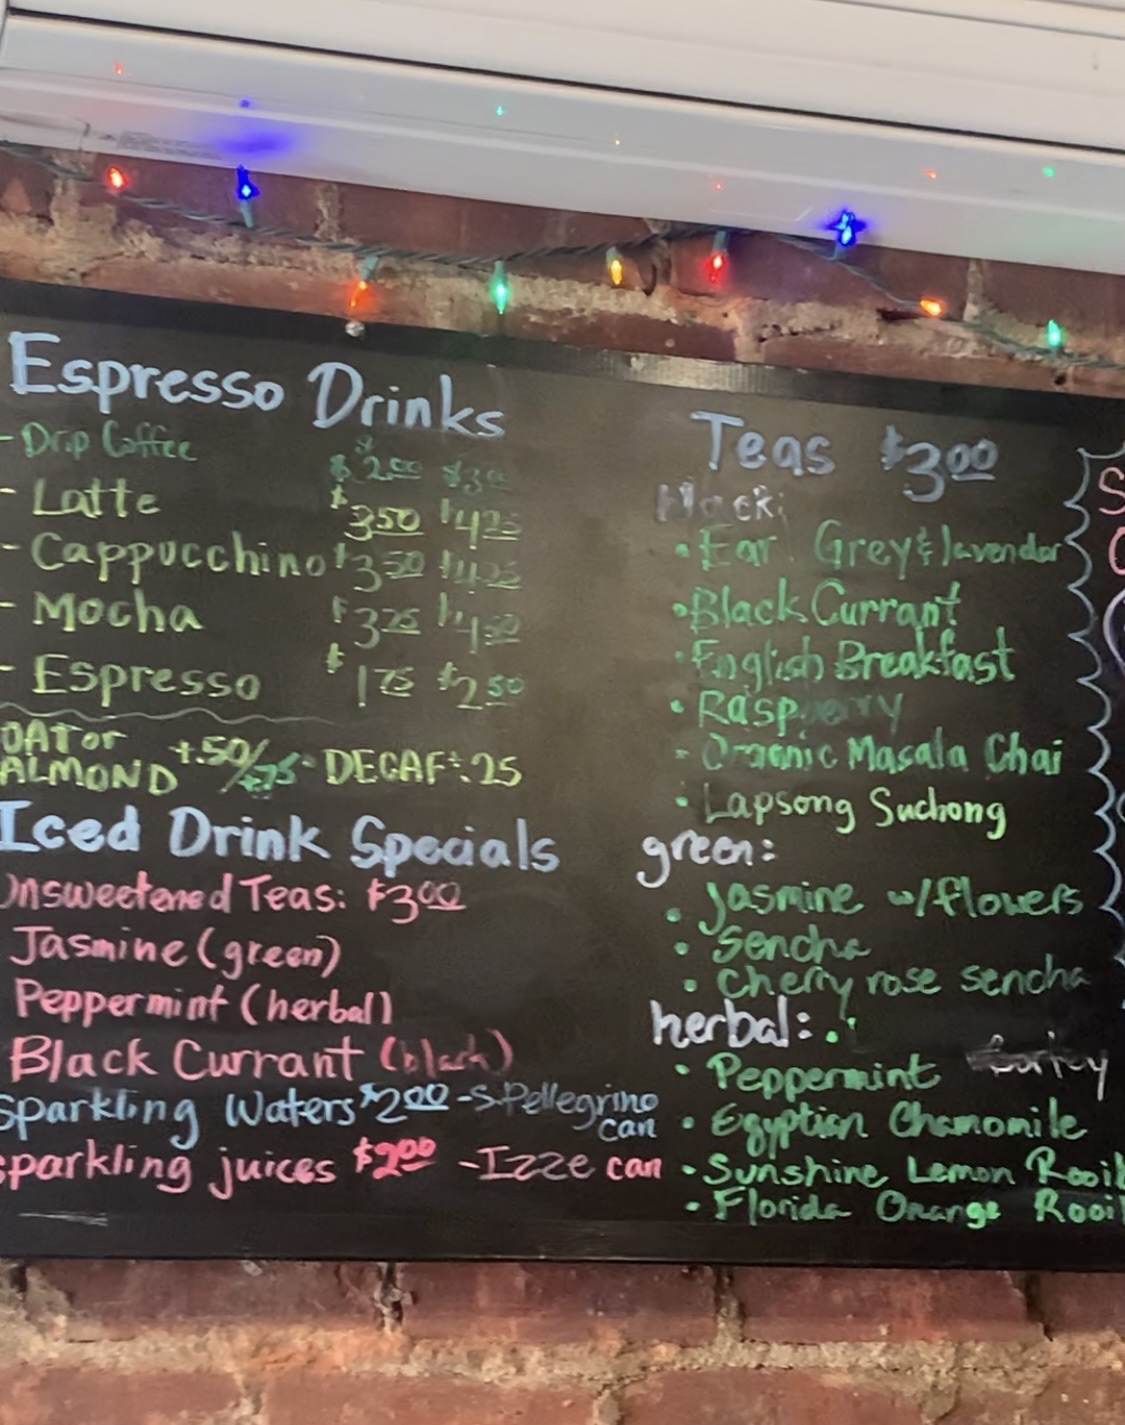 Espresso Drinks
- Drip Coffee $2.00
- Latte $3.50 $4.25
- Cappucchino $3.50 $4.25
- Mocha $3.75 $4.50
- Espresso $1.75 $2.50
OAT or
ALMOND +.50/+.75 · DECAF+.25
Iced Drink Specials
Unsweetened Teas: $3.00
Jasmine (green)
Peppermint (herbal)
Black Currant (black)
Sparkling Waters $2.00 - S.Pellegrino
can
Sparkling juices $2.00 - Izze can
Teas $3.00
black:
· Earl Grey & lavender
· Black Currant
· English Breakfast
· Raspberry
· Organic Masala Chai
· Lapsong Suchong
green:
· Jasmine w/flowers
· Sencha
· Cherry rose sencha
herbal:
· Peppermint
· Egyptian Chamomile
· Sunshine Lemon Rooi
· Florida Orange Rooi